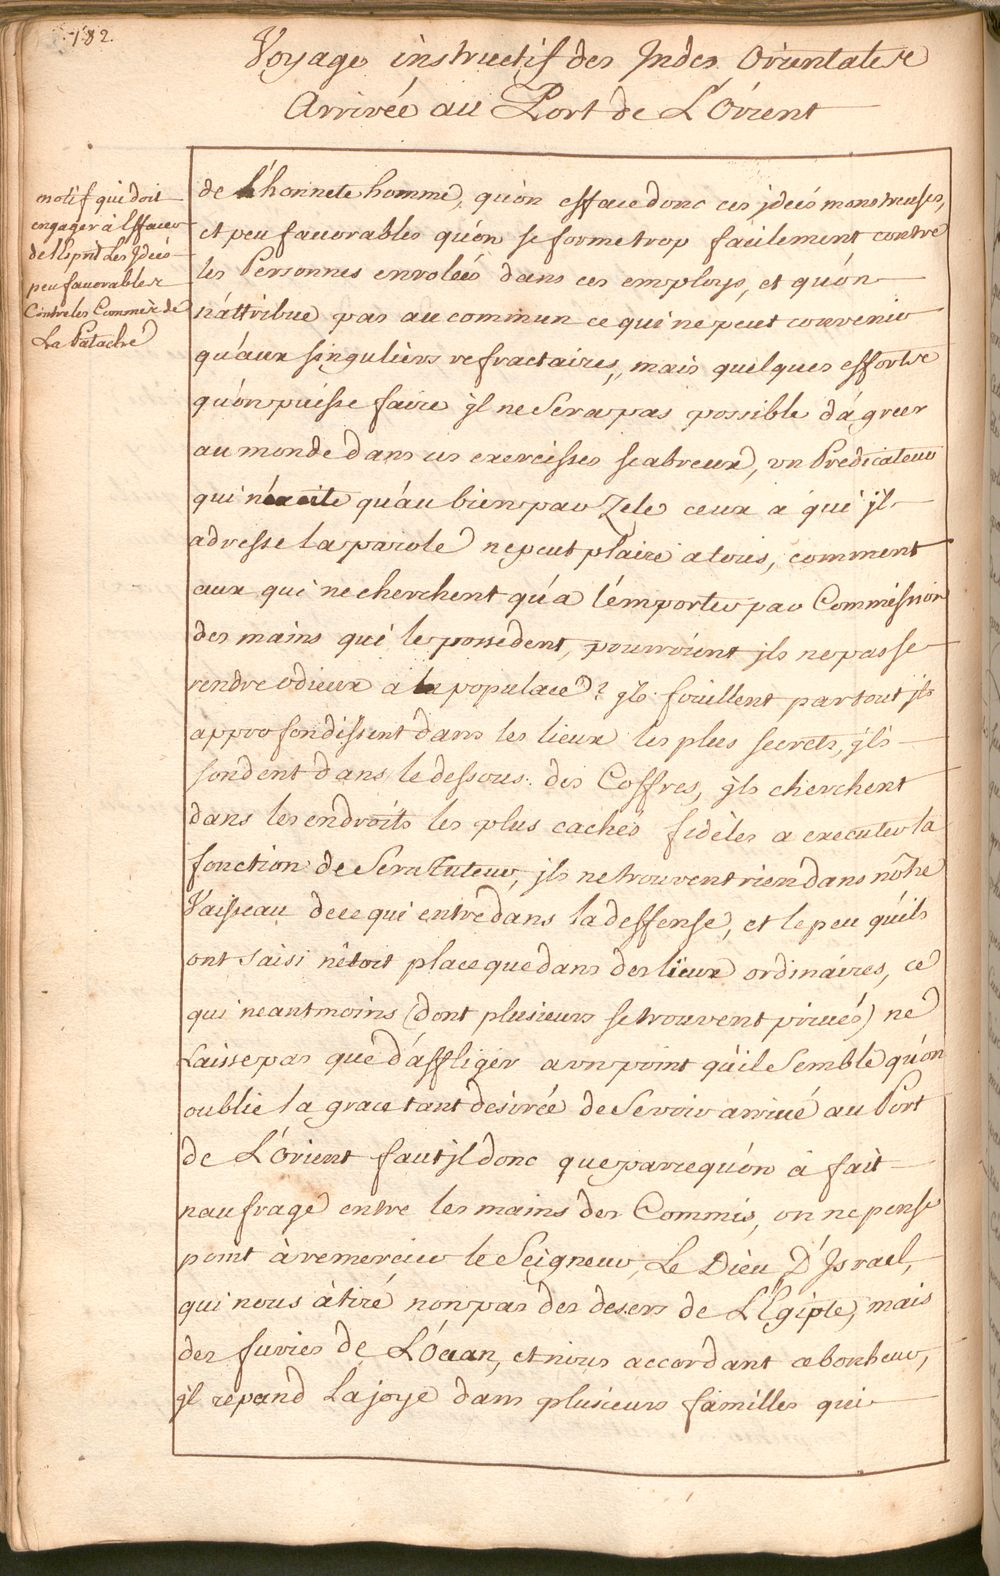 182.
Voyage instructif des Indes Orientales
Arrivée au Port de L'Orient
motif qui doit
engager à Effacer
de l'Esprit Les Idées
peu favorables
Contre les Commis de
La Patache
de l'honnete homme, qu'on efface donc ces idées monstreuses,
et peu favorables qu'on se forme trop facilement contre
les Personnes enrolées dans ces employs, et qu'on
n'attribue pas au commun ce qui ne peut convenir
qu'aux singuliers refractaires, mais quelques efforts
qu'on puisse faire jl ne sera pas possible d'agreer
au monde dans ces exercisses scabreux, un Predicateur
qui n'éxcite qu'au bien par Zele ceux a qui jl
adresse la parole ne peut plaire a tous, comment
ceux qui ne cherchent qu'a l'emporter par Commission
des mains qui le possedent, pourroient jls ne pas se
rendre odieux a la populace? jls fouillent partout jls
approfondissent dans les lieux les plus secrets, jls
sondent dans le dessous des Coffres, jls cherchent
dans les endroits les plus cachés fidèles a executer la
fonction de Scrutateur, jls ne trouvent rien dans nôtre
Vaisseau de ce qui entre dans la deffense, et le peu qu'ils
ont saisi n'êtoit place que dans des lieux ordinaires, ce
qui neantmoins (dont plusieurs se trouvent privés) ne
Laisse pas que d'affliger a un point qu'il semble qu'on
oublie la grace tant desirée de se voir arrivé au Port
de L'Orient faut jl donc que parce qu'on à fait
naufrage entre les mains des Commis, on ne pense
point à remercier le Seigneur, Le Dieu D'Israel,
qui nous à tiré non pas des desers de L'Egipte, mais
des furies de L'Ocean, et nous accordant ce bonheur,
jl repand La joye dans plusieurs familles qui